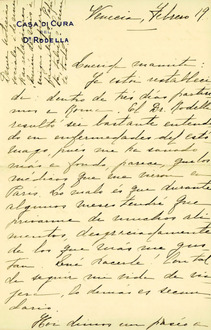 CASA DI CURA
DEL
Dr RODELLA
Venecia, Febrero 19
Querida mamita:
Ya estoy restableci
da: dentro de tres días partire
mos a Roma. El Dr. Rodella
resultó ser bastante entendi
do en enfermedades del estó
mago, pues me ha sanado
más a fondo, parece, que los
médicos que me vieron en
París. Lo malo es que durante
algunos meses tendré que
privarme de muchos ali
mentos, desgraciadamente
de los que más me gus
tan. Qué hacerle! Con tal
de seguir mi vida de via
jero, lo demás es secun
dario.
Hoy dimos un paseo a